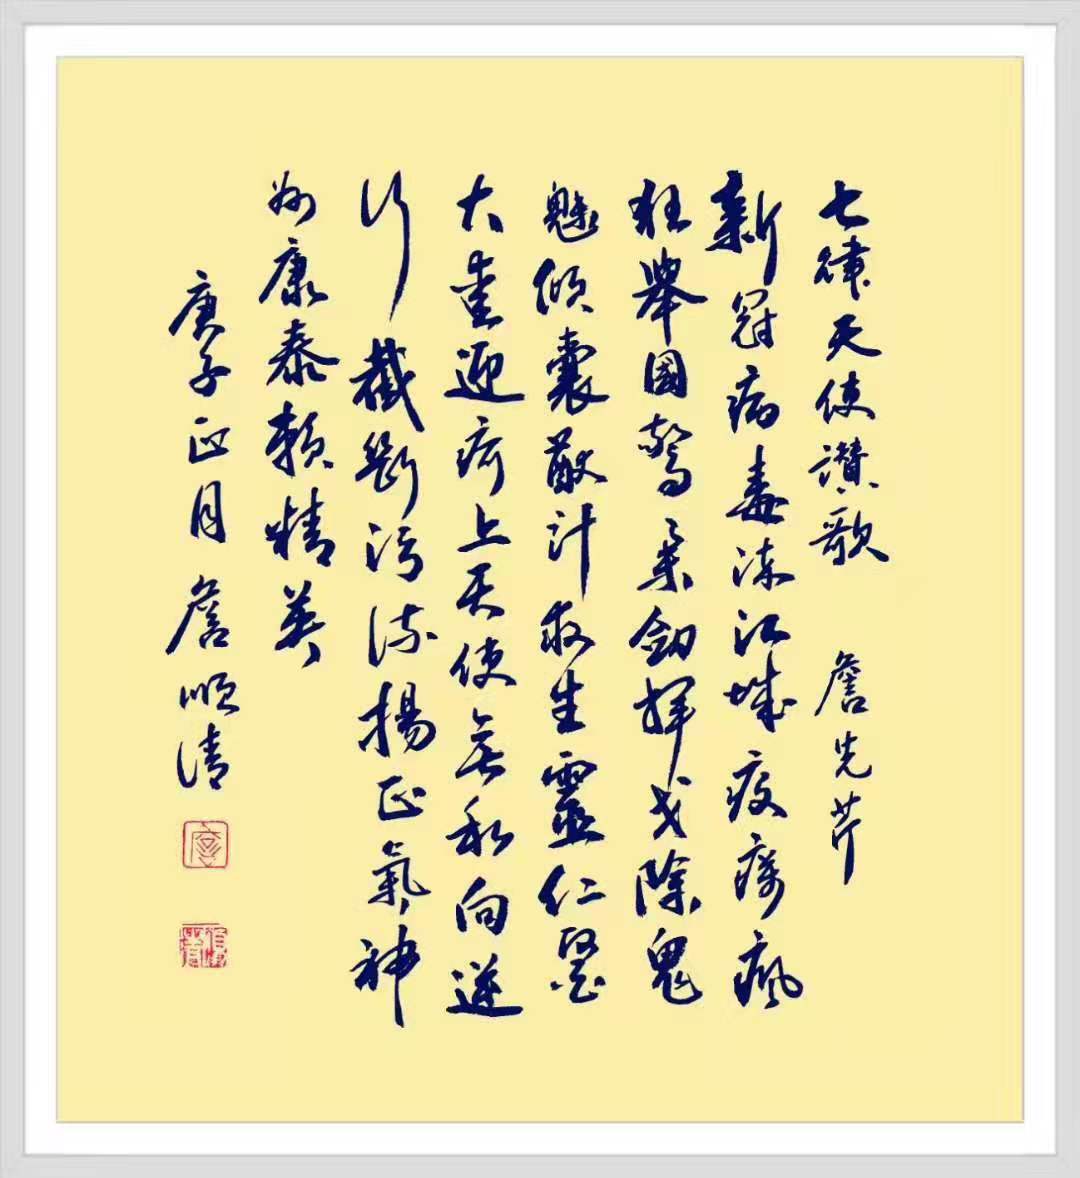 七律天使讚歌 詹先芹
新冠病毒江城疫瘋
狂舉國驚柔劍揮戈除鬼
魅傾囊獻計救生靈仁醫
大愛迎疴上天使無私向逆
行截斷污流揚正氣神
州康泰賴精英
庚子正月 詹順清